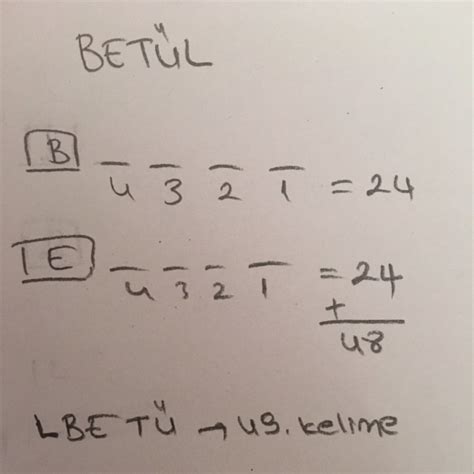 BETÜL
B _ _ _ _
4 3 2 1 = 24
E _ _ _ _ = 24
4 3 2 1 +
48
LBETÜ → 49. kelime